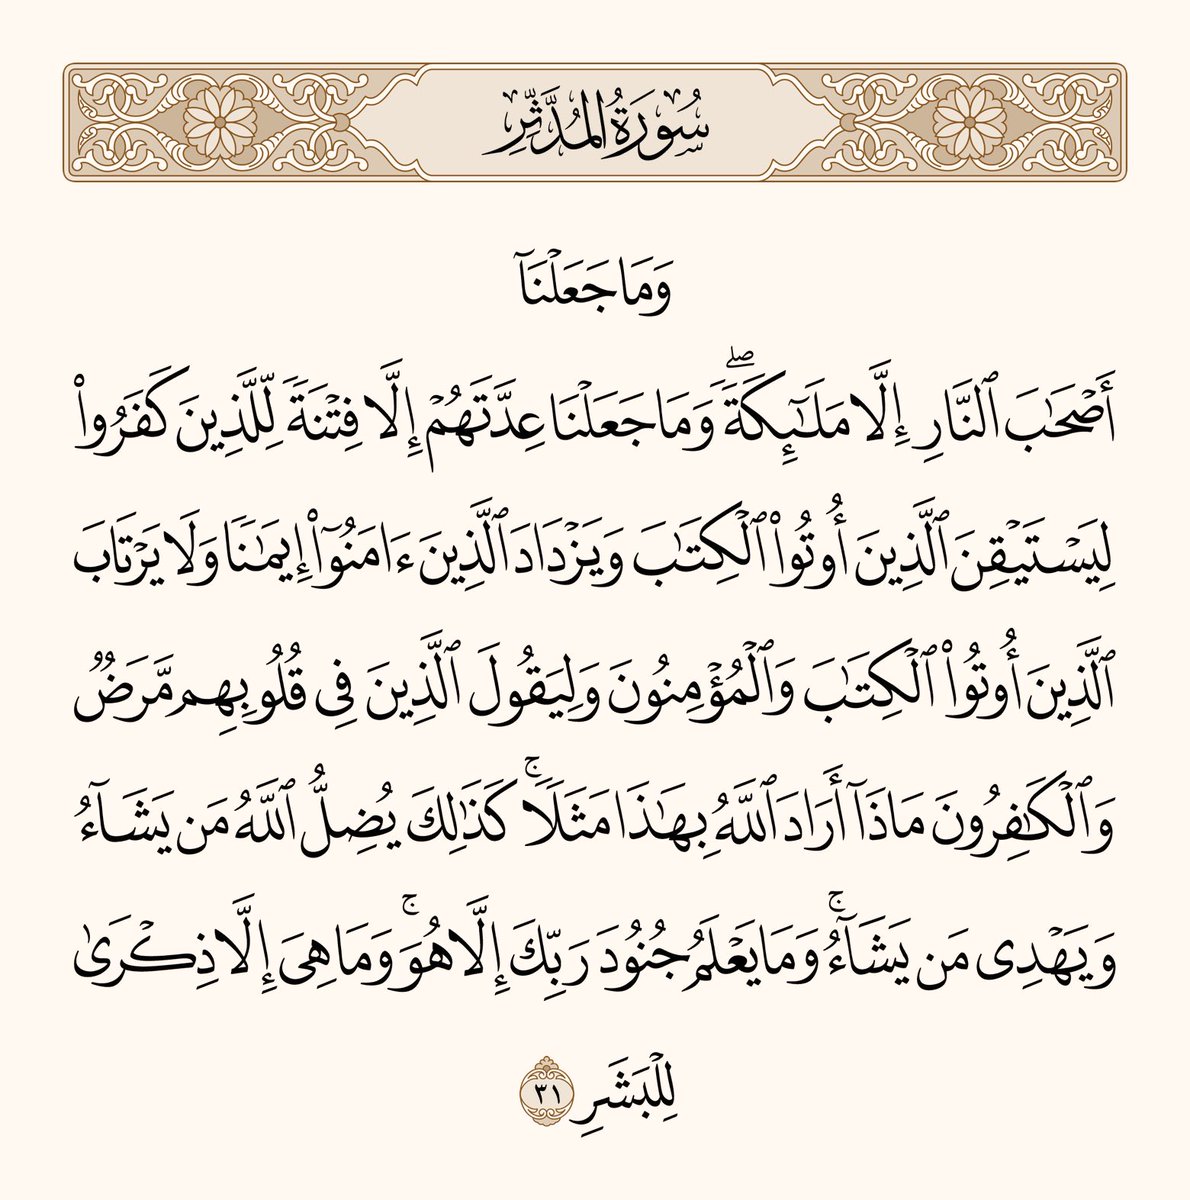 سُورَةُ المُدَّثِّرِ
وَمَا جَعَلۡنَآ
أَصۡحَٰبَ ٱلنَّارِ إِلَّا مَلَٰٓئِكَةٗۖ وَمَا جَعَلۡنَا عِدَّتَهُمۡ إِلَّا فِتۡنَةٗ لِّلَّذِينَ كَفَرُواْ
لِيَسۡتَيۡقِنَ ٱلَّذِينَ أُوتُواْ ٱلۡكِتَٰبَ وَيَزۡدَادَ ٱلَّذِينَ ءَامَنُوٓاْ إِيمَٰنٗا وَلَا يَرۡتَابَ
ٱلَّذِينَ أُوتُواْ ٱلۡكِتَٰبَ وَٱلۡمُؤۡمِنُونَ وَلِيَقُولَ ٱلَّذِينَ فِي قُلُوبِهِم مَّرَضٞ
وَٱلۡكَٰفِرُونَ مَاذَآ أَرَادَ ٱللَّهُ بِهَٰذَا مَثَلٗاۚ كَذَٰلِكَ يُضِلُّ ٱللَّهُ مَن يَشَآءُ
وَيَهۡدِي مَن يَشَآءُۚ وَمَا يَعۡلَمُ جُنُودَ رَبِّكَ إِلَّا هُوَۚ وَمَا هِيَ إِلَّا ذِكۡرَىٰ
لِلۡبَشَرِ ٣١